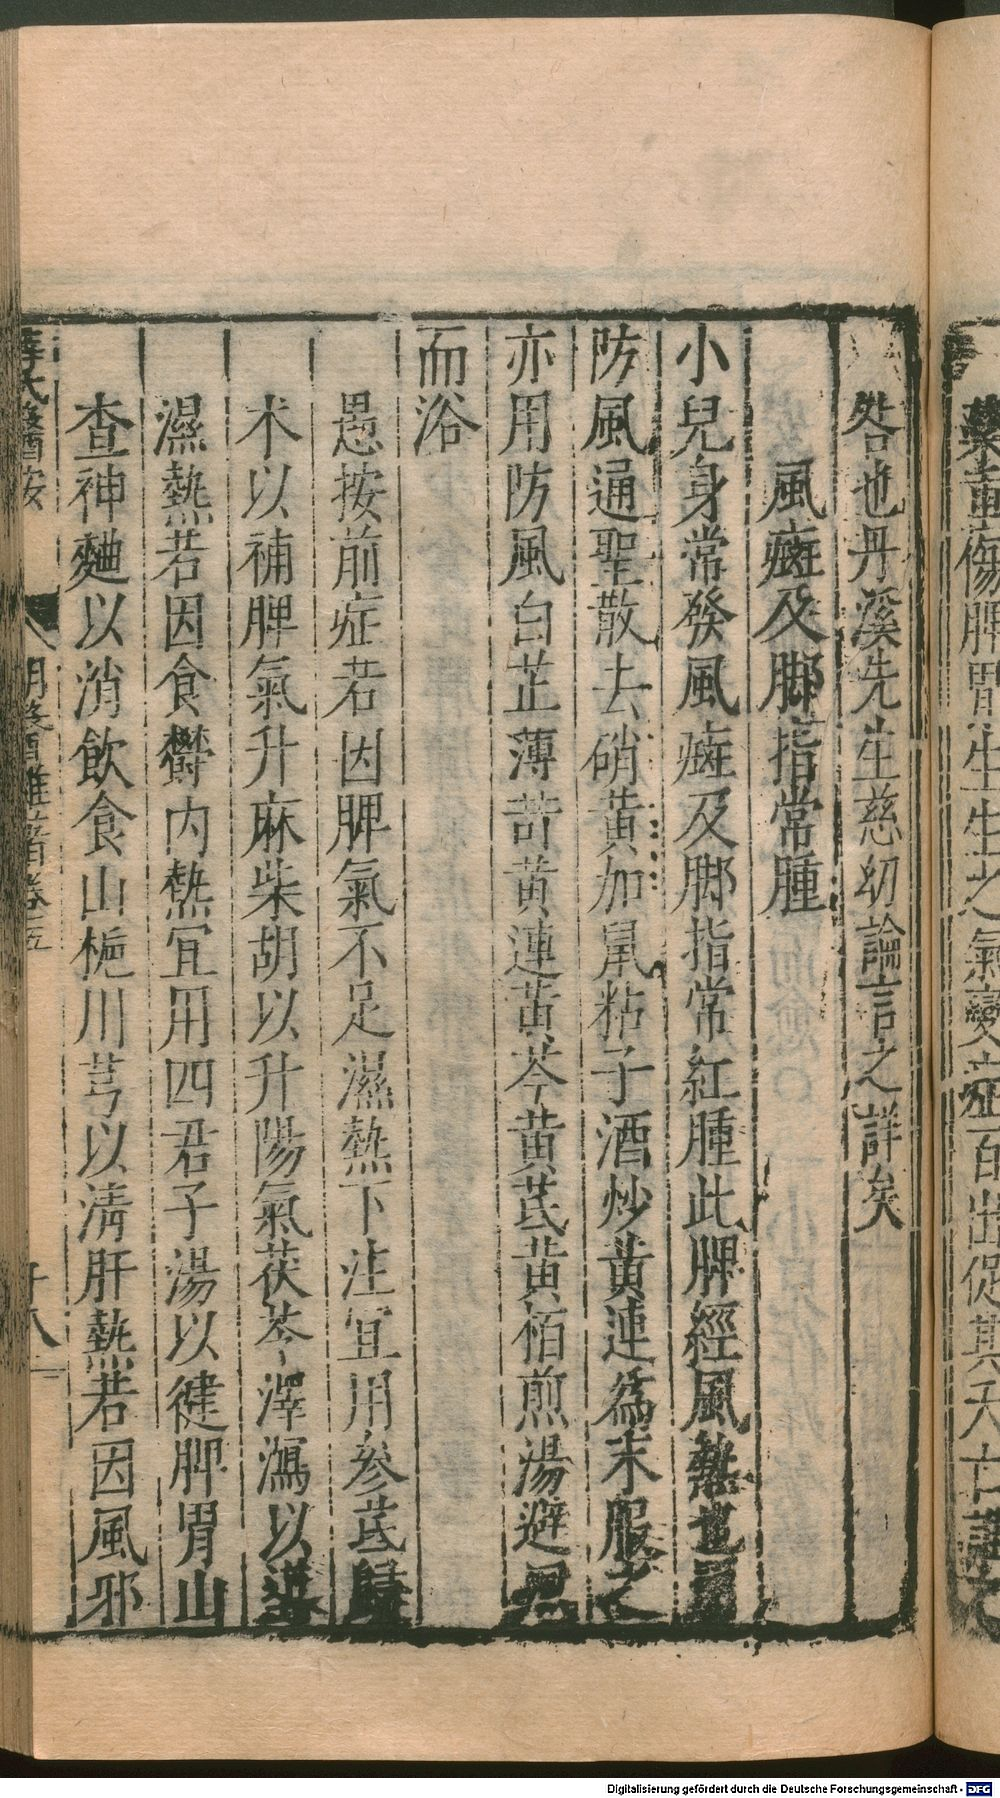 藥重傷脾胃生生之氣變症百出促其夭亡誰之
咎也丹溪先生慈幼論言之詳矣
風癍及脚指常腫
小兒身常發風癍及脚指常紅腫此脾經風熱也
防風通聖散去硝黃加鼠粘子酒炒黃連為末服之
亦用防風白芷薄苛黃連黃芩黃芪黃栢煎湯避風
而浴
愚按前症若因脾氣不足濕熱下注宜用參芪歸
术以補脾氣升麻柴胡以升陽氣茯苓澤瀉以導
濕熱若因食欝内熱宜用四君子湯以健脾胃山
查神麯以消飲食山梔川芎以清肝熱若因風邪
薛氏醫按
明醫雜著卷五
Digitalisierung gefördert durch die Deutsche Forschungsgemeinschaft - DFG